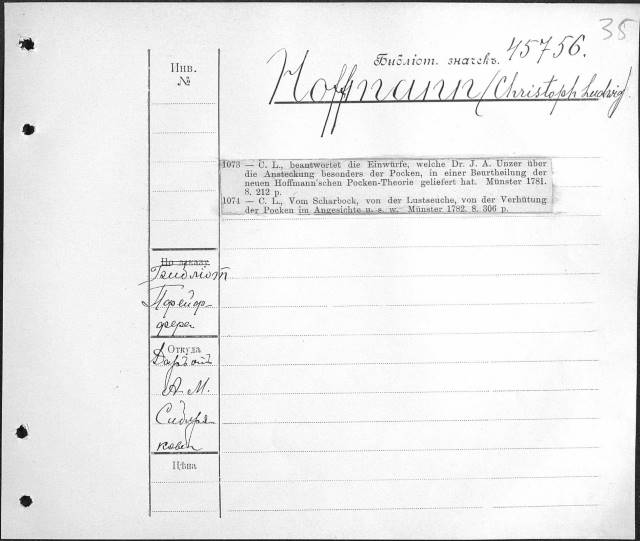 35
Библіот. значекъ. 45756.
Инв.
№
Hoffmann (Christoph Ludwig).
1073 — C. L., beantwortet die Einwürfe, welche Dr. J. A. Unzer über
die Ansteckung besonders der Pocken, in einer Beurtheilung der
neuen Hoffmann'schen Pocken-Theorie geliefert hat. Münster 1781.
8. 212 p.
1074 — C. L., Vom Scharbock, von der Lustseuche, von der Verhütung
der Pocken im Angesichte u. s. w. Münster 1782. 8. 306 p.
По заказу
Библіот
Пфейф-
фера
Откуда
Даръ отъ
А. М.
Сибиря-
кова
Цѣна